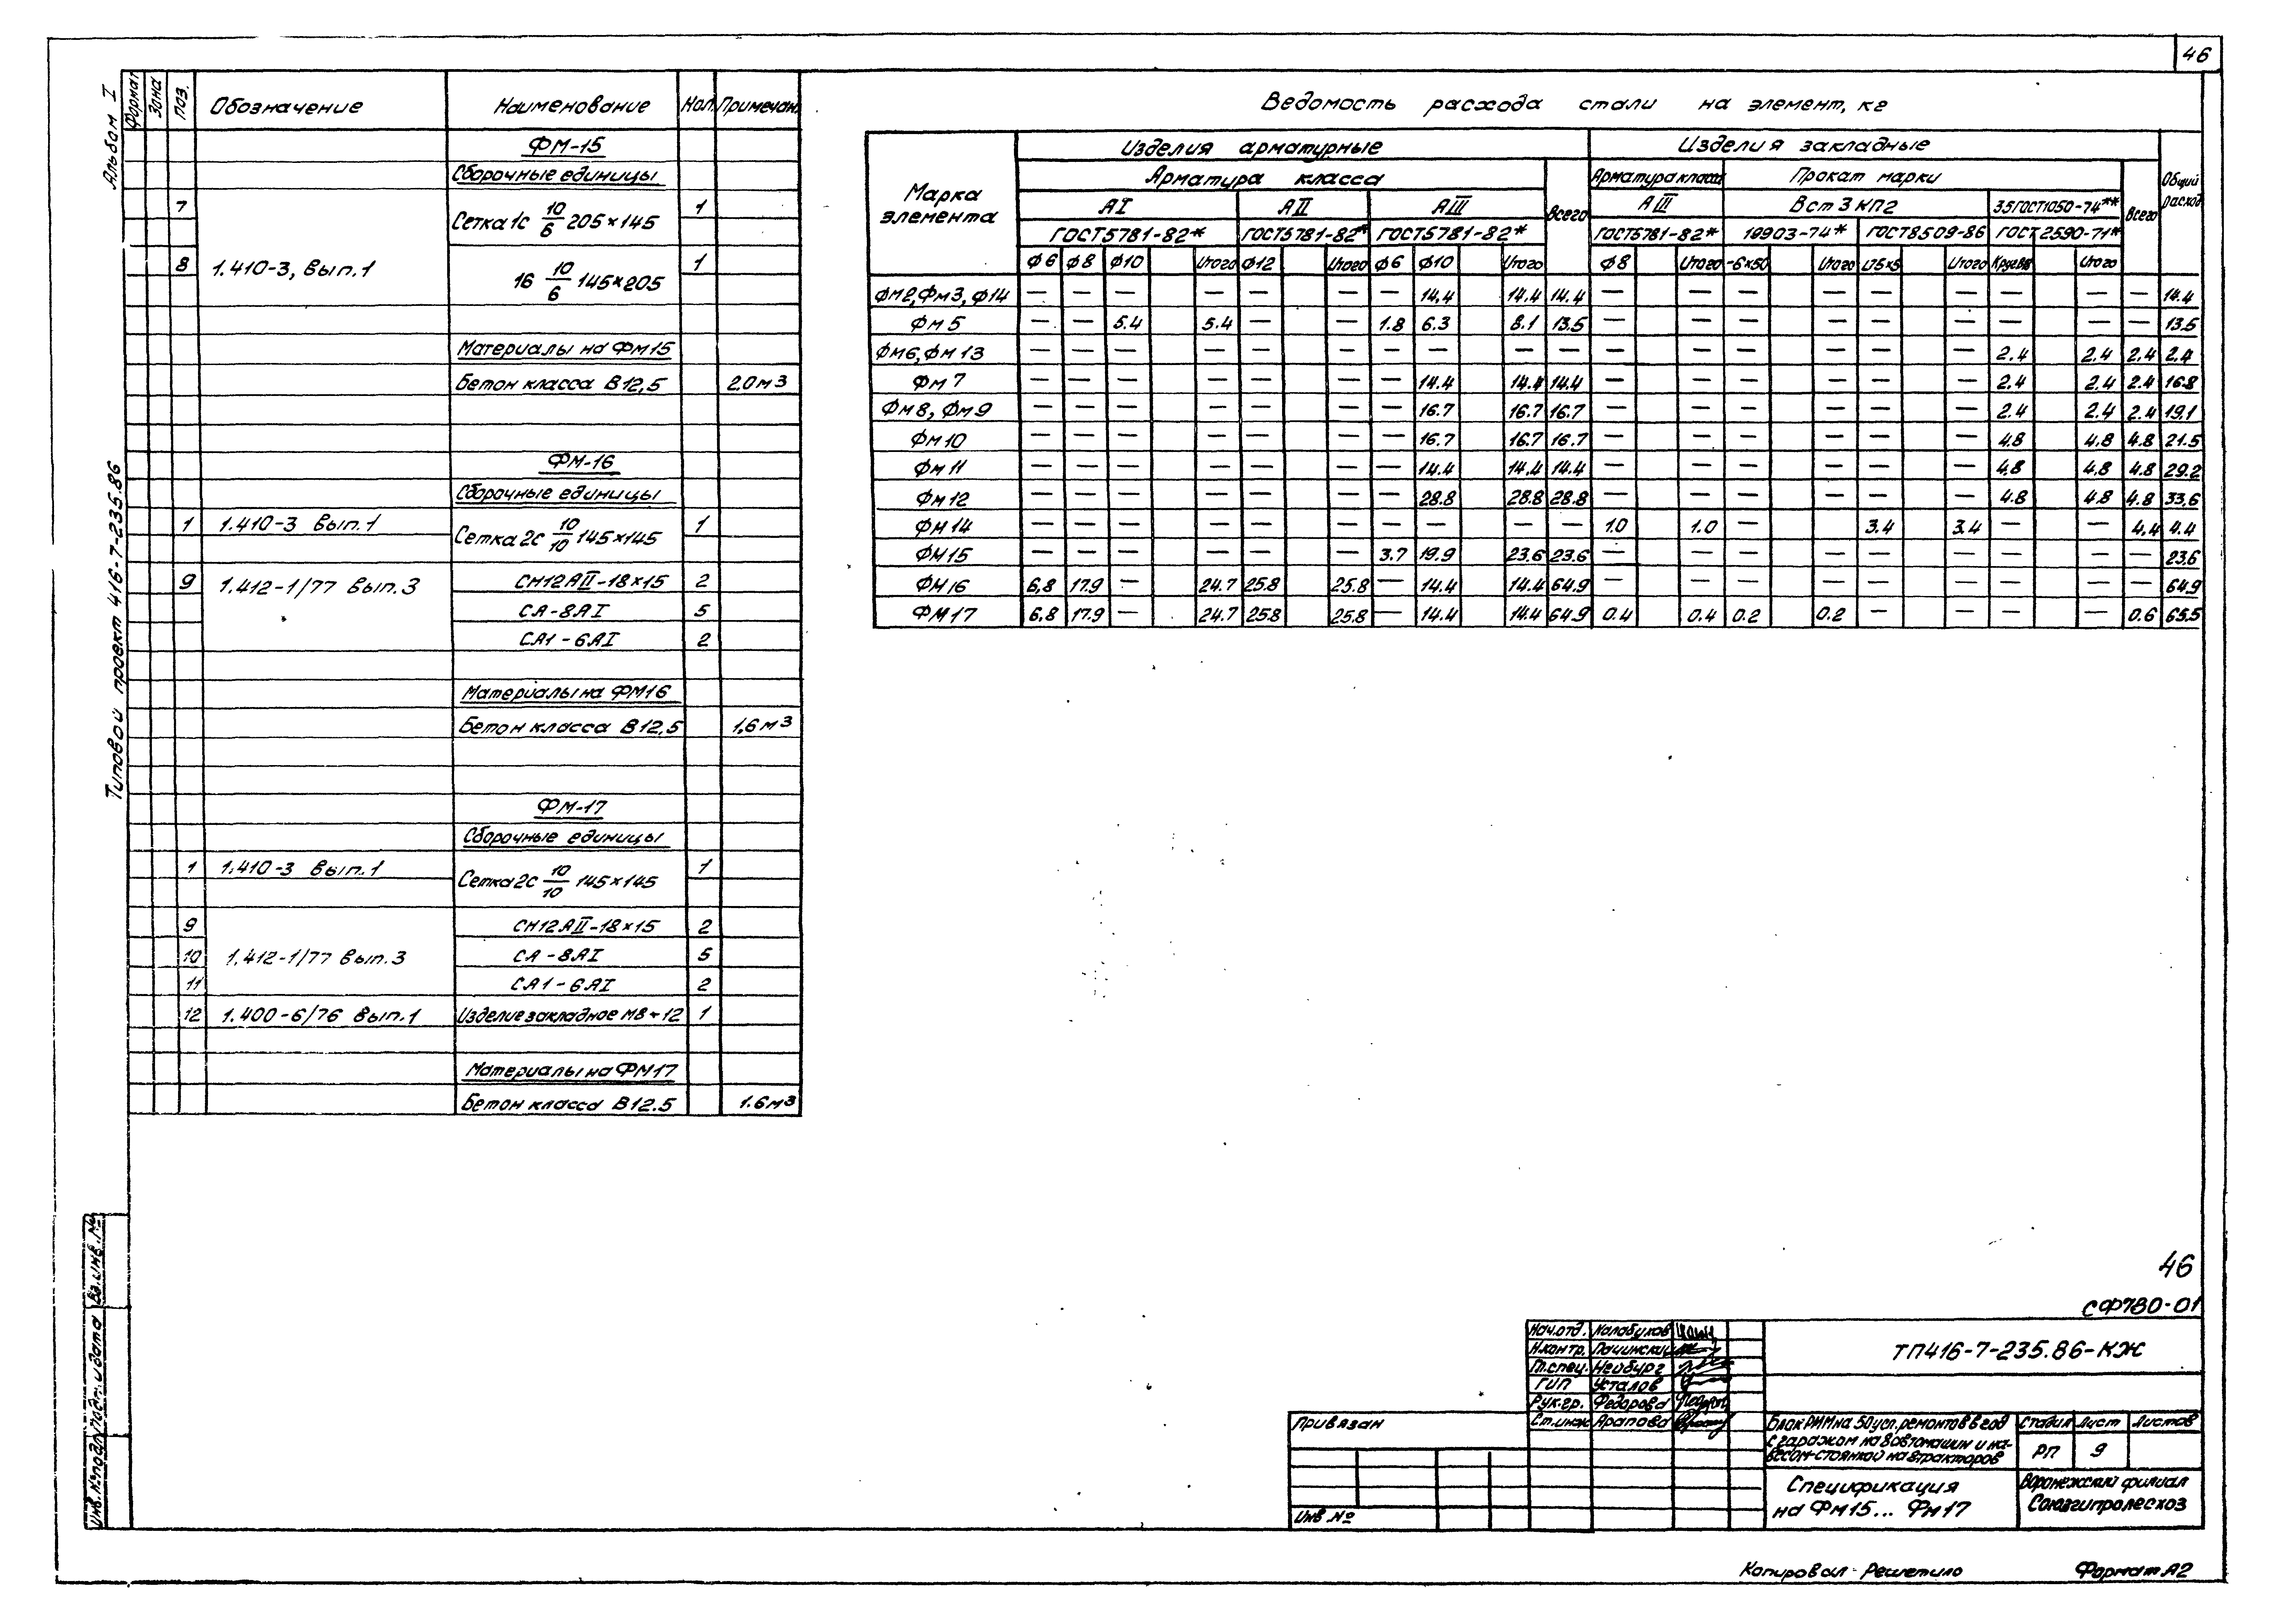 46
Альбом I
Типовой проект 416-7-235.86
Формат Зона Поз. Обозначение Наименование Кол. Примечан.
ФМ-15
Сборочные единицы
7 Сетка 1с 10/6 205×145 1
8 1.410-3, Вып.1 1б 10/6 145×205 1
Материалы на ФМ15
Бетон класса В12,5 2.0 м3
ФМ-16
Сборочные единицы
1 1.410-3 Вып.1 Сетка 2с 10/10 145×145 1
9 1.412-1/77 Вып.3 СН12АII-18×15 2
СА-8АI 5
СА1-6АI 2
Материалы на ФМ16
Бетон класса В12,5 1,6 м3
ФМ-17
Сборочные единицы
1 1.410-3 Вып.1 Сетка 2с 10/10 145×145 1
9 СН12АII-18×15 2
10 1.412-1/77 Вып.3 СА-8АI 5
11 СА1-6АI 2
12 1.400-6/76 Вып.1 Изделие закладное М8-12 1
Материалы на ФМ17
Бетон класса В12.5 1.6 м3
Ведомость расхода стали на элемент, кг
Марка элемента Изделия арматурные Изделия закладные Общий расход
Арматура класса Всего Арматура класса Прокат марки Всего
АI АII АIII АIII Вст3КП2 35ГОСТ1050-74**
ГОСТ5781-82* ГОСТ5781-82* ГОСТ5781-82* ГОСТ5781-82* 19903-74* ГОСТ8509-86 ГОСТ2590-71*
ф6 ф8 ф10 Итого ф12 Итого ф6 ф10 Итого ф8 Итого -6×50 Итого L75×5 Итого Итого
ФМ2,ФМ3,Ф14 — — — — — — — 14.4 14.4 14.4 — — — — — — — — — 14.4
ФМ5 — — 5.4 5.4 — — 1.8 6.3 8.1 13.5 — — — — — — — — — 13.5
ФМ6,ФМ13 — — — — — — — — — — — — — — — — 2.4 2.4 2.4 2.4
ФМ7 — — — — — — — 14.4 14.4 14.4 — — — — — — 2.4 2.4 2.4 16.8
ФМ8, ФМ9 — — — — — — — 16.7 16.7 16.7 — — — — — — 2.4 2.4 2.4 19.1
ФМ10 — — — — — — — 16.7 16.7 16.7 — — — — — — 4.8 4.8 4.8 21.5
ФМ11 — — — — — — — 14.4 14.4 14.4 — — — — — — 4.8 4.8 4.8 29.2
ФМ12 — — — — — — — 28.8 28.8 28.8 — — — — — — 4.8 4.8 4.8 33,6
ФМ14 — — — — — — — — — — 1.0 1.0 — — 3.4 3.4 — — 4.4 4.4
ФМ15 — — — — — — 3.7 19.9 23.6 23.6 — — — — — — — — — 23.6
ФМ16 6,8 17.9 — 24.7 25.8 25.8 — 14.4 14.4 64.9 — — — — — — — — — 64.9
ФМ17 6,8 17.9 — 24.7 25.8 25.8 — 14.4 14.4 64.9 0.4 0.4 0.2 0.2 — — — — 0.6 65.5
46
СФ780-01
Нач.отд. Калабухов
Н.контр. Пачинский
Гл.спец. Нейбург
ГИП Усталов
Рук.гр. Федорова
Ст.инж Арапова
ТП416-7-235.86-КЖ
Блок РММ на 50 усл. ремонтов в год
с гаражом на 8 автомашин и на-
весом-стоянкой на 8 тракторов
Стадия Лист Листов
РП 9
Спецификация
на ФМ15... ФМ17
Воронежский филиал
Союзгипролесхоз
Привязан
Инв №
Инв.№подл Подп. и дата Вз.инв.№
Копировал Решетило Формат А2